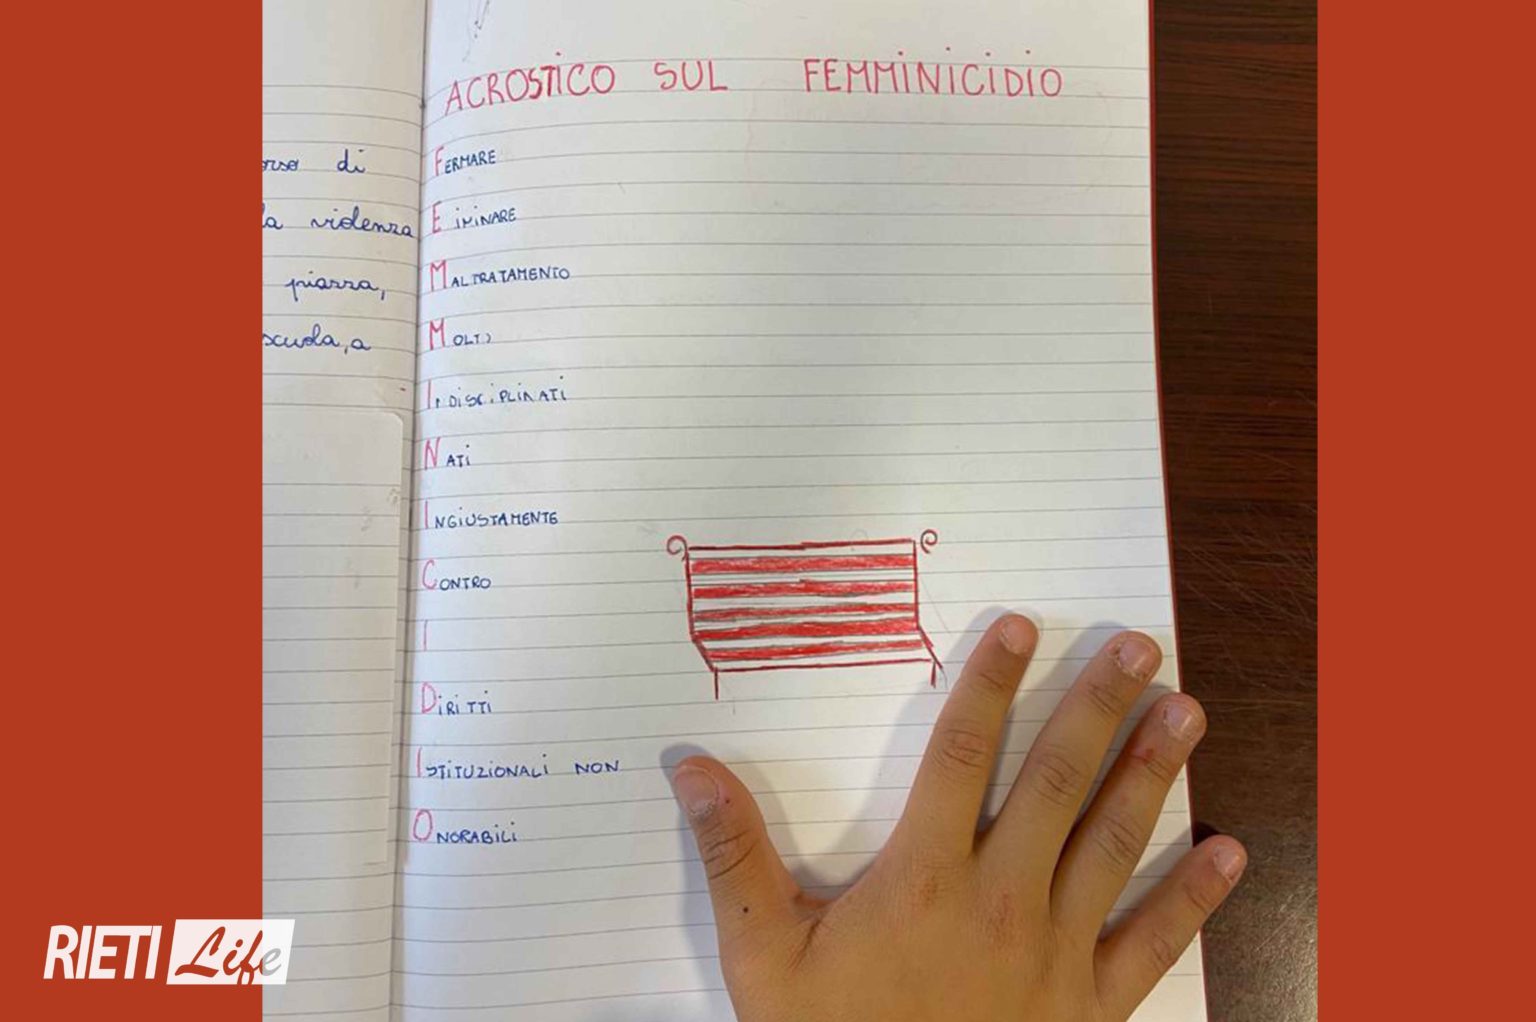 ACROSTICO SUL FEMMINICIDIO
di
violenza
piazza,
scuola, a
FERMARE
EIMINARE
MALTRATAMENTO
MOLTI
INDISCIPLINATI
NATI
INGIUSTAMENTE
CONTRO
I
DIRITTI
ISTITUZIONALI NON
ONORABILI
RIETI Life